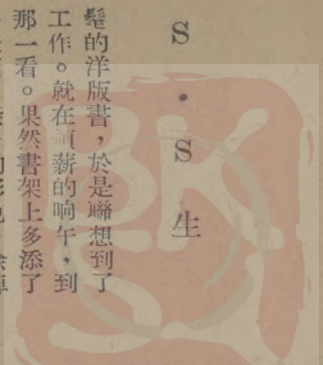 S・S生
髦的洋版書，於是聯想到了
工作。就在 薪的晌午，到
那一看。果然書架上多添了